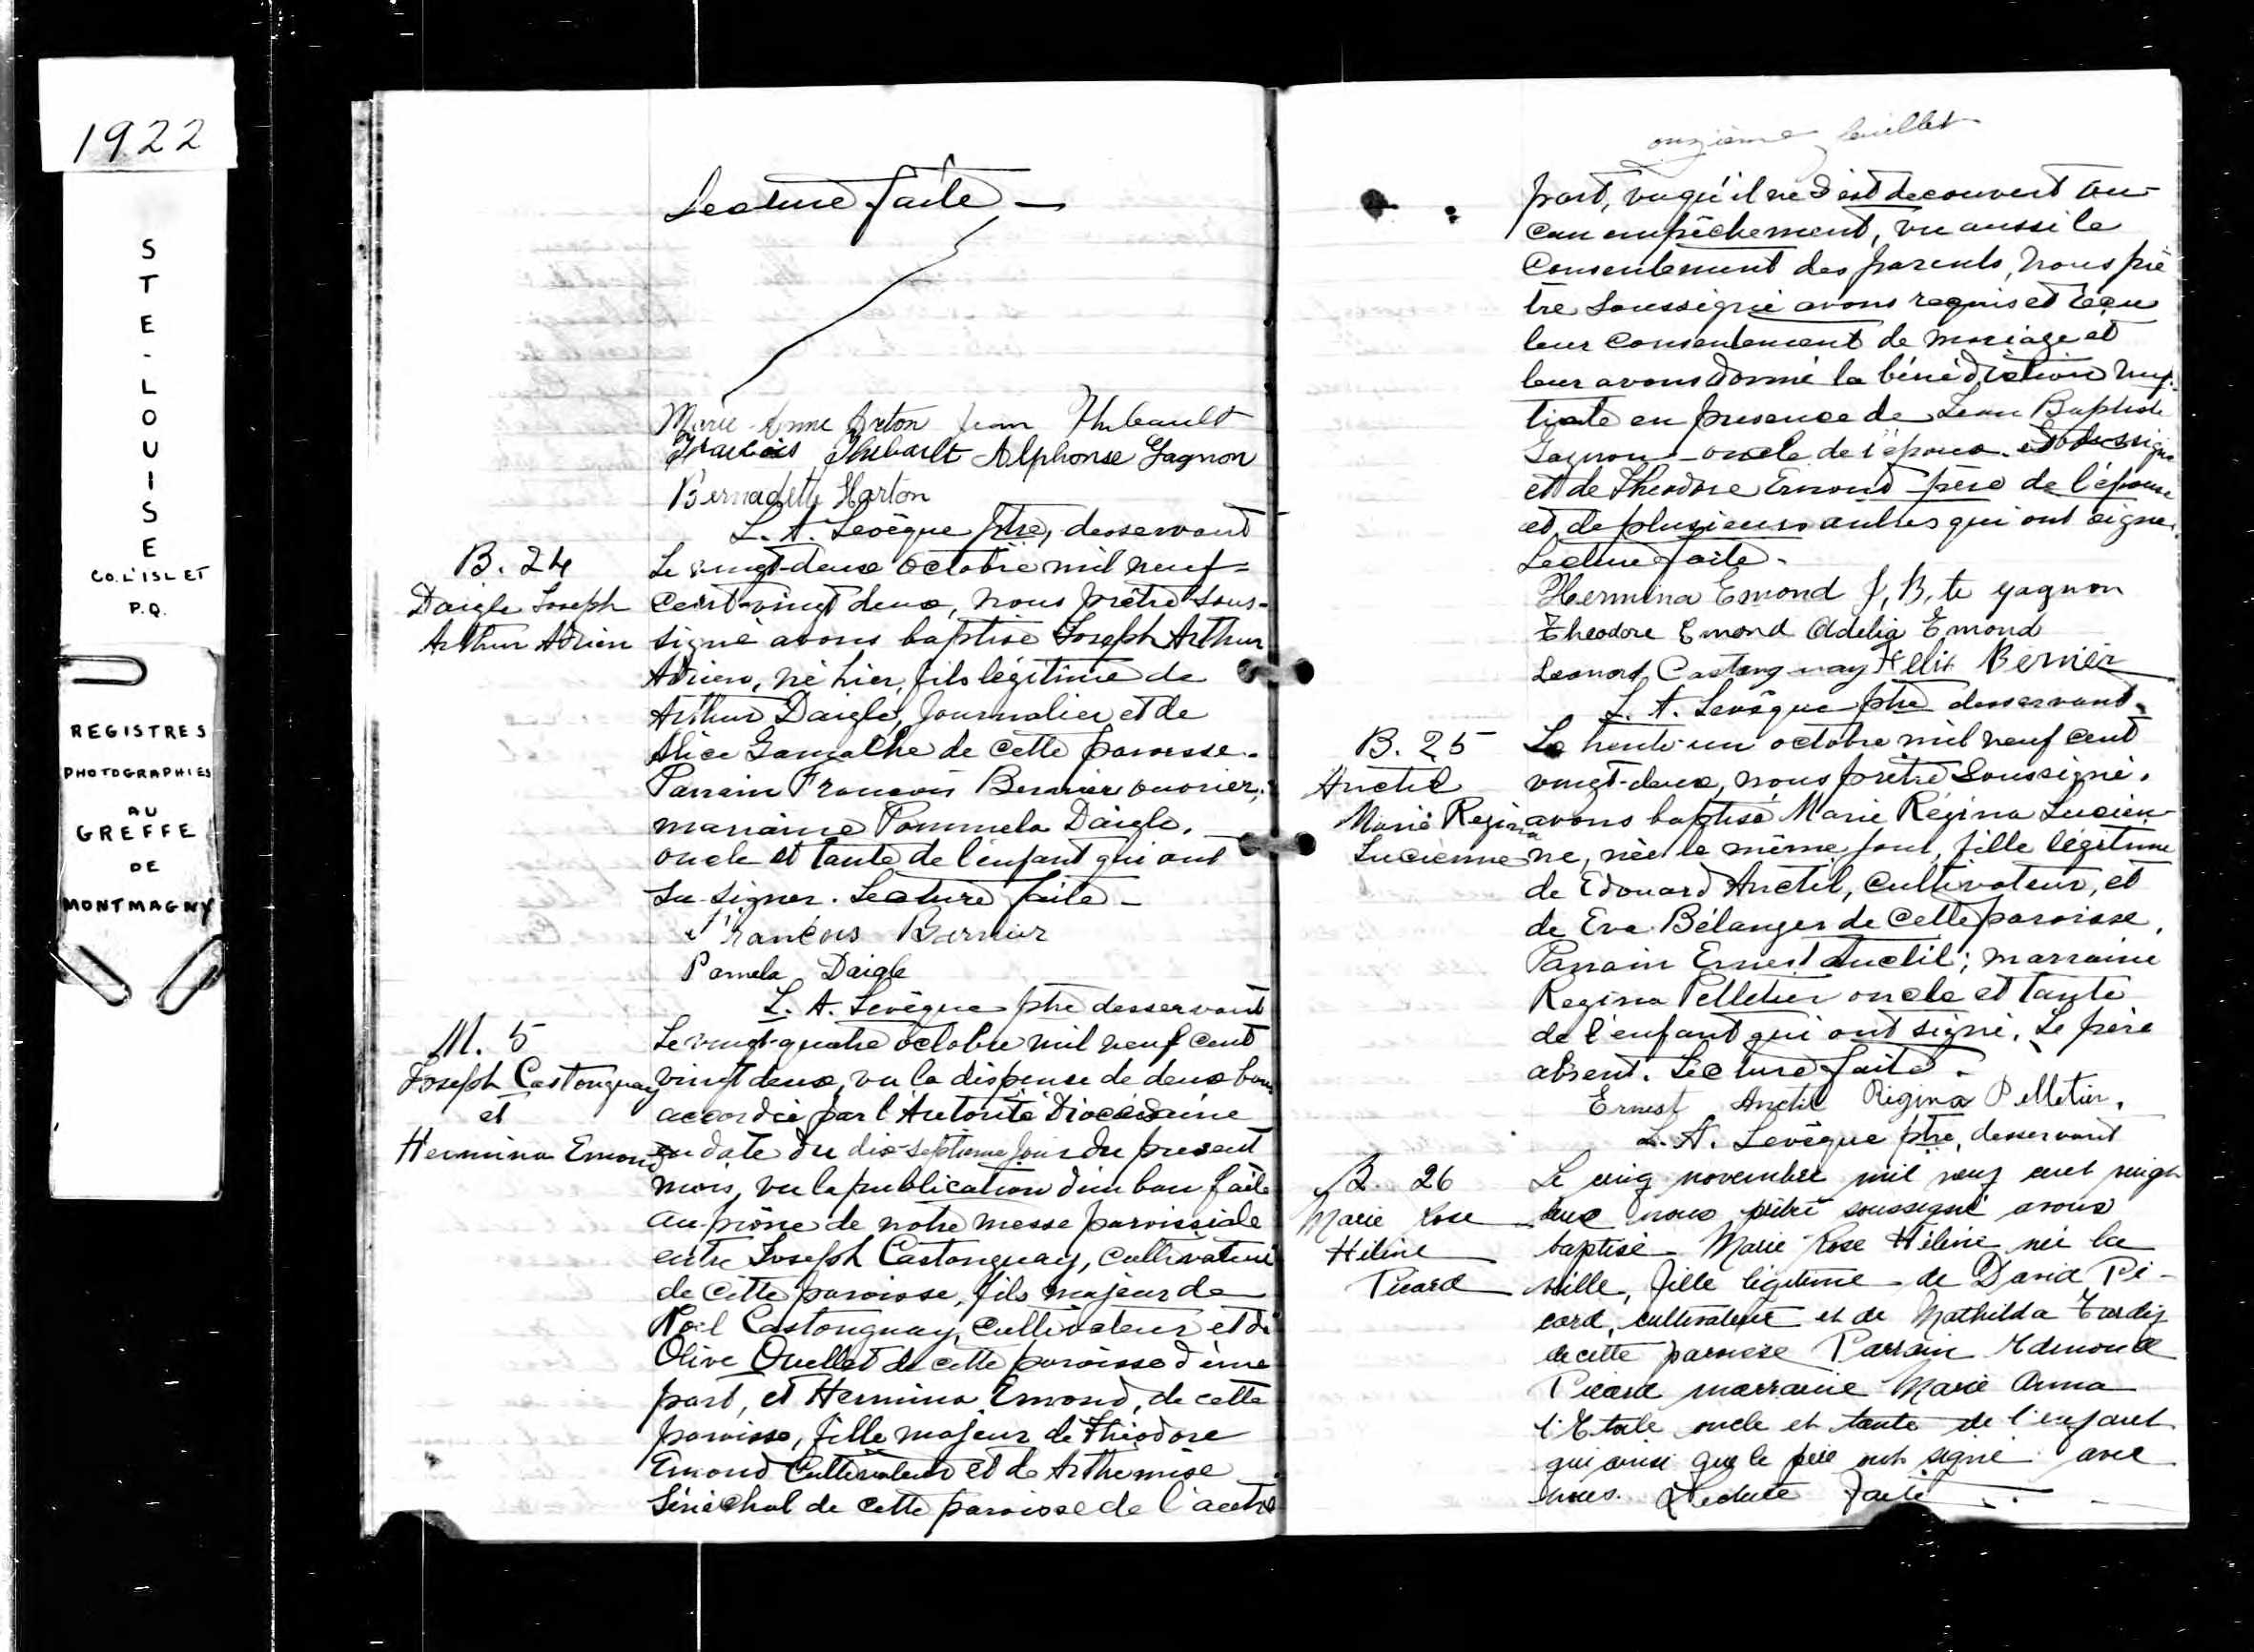 1922
STE-LOUISE
CO. L'ISLET
P.Q.
REGISTRES
PHOTOGRAPHIES
AU
GREFFE
DE
MONTMAGNY
Lecture faite —
Marie-Anne Jean Thibault
François Thibault Alphonse Gagnon
Bernadette Harton
L. A. Levêque ptre, desservant
B. 24
Daigle Joseph
Arthur Adrien
Le vingt-deux octobre mil neuf-
cent-vingt deux, nous prêtre sous-
signé avons baptisé Joseph Arthur
Adrien, né hier, fils légitime de
Arthur Daigle, journalier et de
Alice Gamache de cette paroisse.
Parrain François Bernier ouvrier;
marraine Pommela Daigle,
oncle et tante de l'enfant qui ont
su signer. Lecture faite —
François Bernier
Pamela Daigle
L. A. Levêque ptre desservant
M. 5
Joseph Castonguay
et
Hermina Emond
Le vingt-quatre octobre mil neuf cent
vingt deux, vu la dispense de deux bans
accordée par l'Autorité Diocésaine
en date du dix-septième jour du présent
mois, vu la publication d'un ban faite
au prône de notre messe paroissiale
entre Joseph Castonguay, cultivateur
de cette paroisse, fils majeur de
Noël Castonguay, cultivateur et de
Olive Ouellet de cette paroisse d'une
part, et Hermina Emond, de cette
paroisse, fille majeur de Théodore
Emond Cultivateur et de Arthemise
Sénéchal de cette paroisse de l'autre
onzième feuillet
part, vu qu'il ne s'est decouvert au-
cun empêchement, vu aussi le
consentement des parents, nous prê
tre soussigné avons requis et reçu
leur consentement de mariage et
leur avons donné la bénédiction nup-
tiale en presence de Jean Baptiste
Gagnon - oncle de l'époux
et de Théodore Emond père de l'épouse
et de plusieurs autres qui ont signe.
Lecture faite.
Hermina Emond J, B, te gagnon
Theodore Emond Adelia Emond
Leonard Castonguay Felix Bernier
L. A. Levêque ptre desservant.
B. 25
Anctil
Marie Regina
Lucienne
Le trente-un octobre mil neuf cent
vingt-deux, nous prêtre soussigné.
avons baptisé Marie Régina Lucien-
ne, née le même jour, fille légitime
de Edouard Anctil, cultivateur, et
de Eva Bélanger de cette paroisse.
Parrain Ernest Anctil; marraine
Regina Pelletier oncle et tante
de l'enfant qui ont signé. Le père
absent. Lecture faite.
Ernest Anctil Régina Pelletier.
L. A. Levêque ptre, desservant
B. 26
Marie Rose
Hélène
Picard
Le cinq novembre mil neuf cent vingt
deux nous prêtre soussigné avons
baptisé Marie Rose Hélène née la
veille, fille légitime de David Pi-
card, cultivateur et de Mathilda Tardif
de cette paroisse Parrain Edmond
Picard marraine Marie Anna
l'Etoile oncle et tante de l'enfant
qui ainsi que le père ont signé avec
nous. Lecture faite